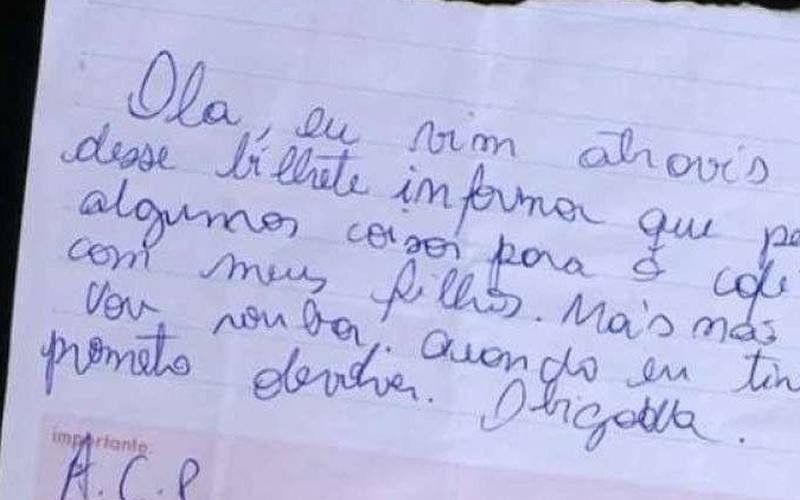 Ola, eu vim atravis
desse bilhete informar que pe
algumas coisas para o cafe
com meus filhos. Mais mas
Vou rouba. Quando eu tin
prometo devolver. Obigada.
importante:
A.C.P